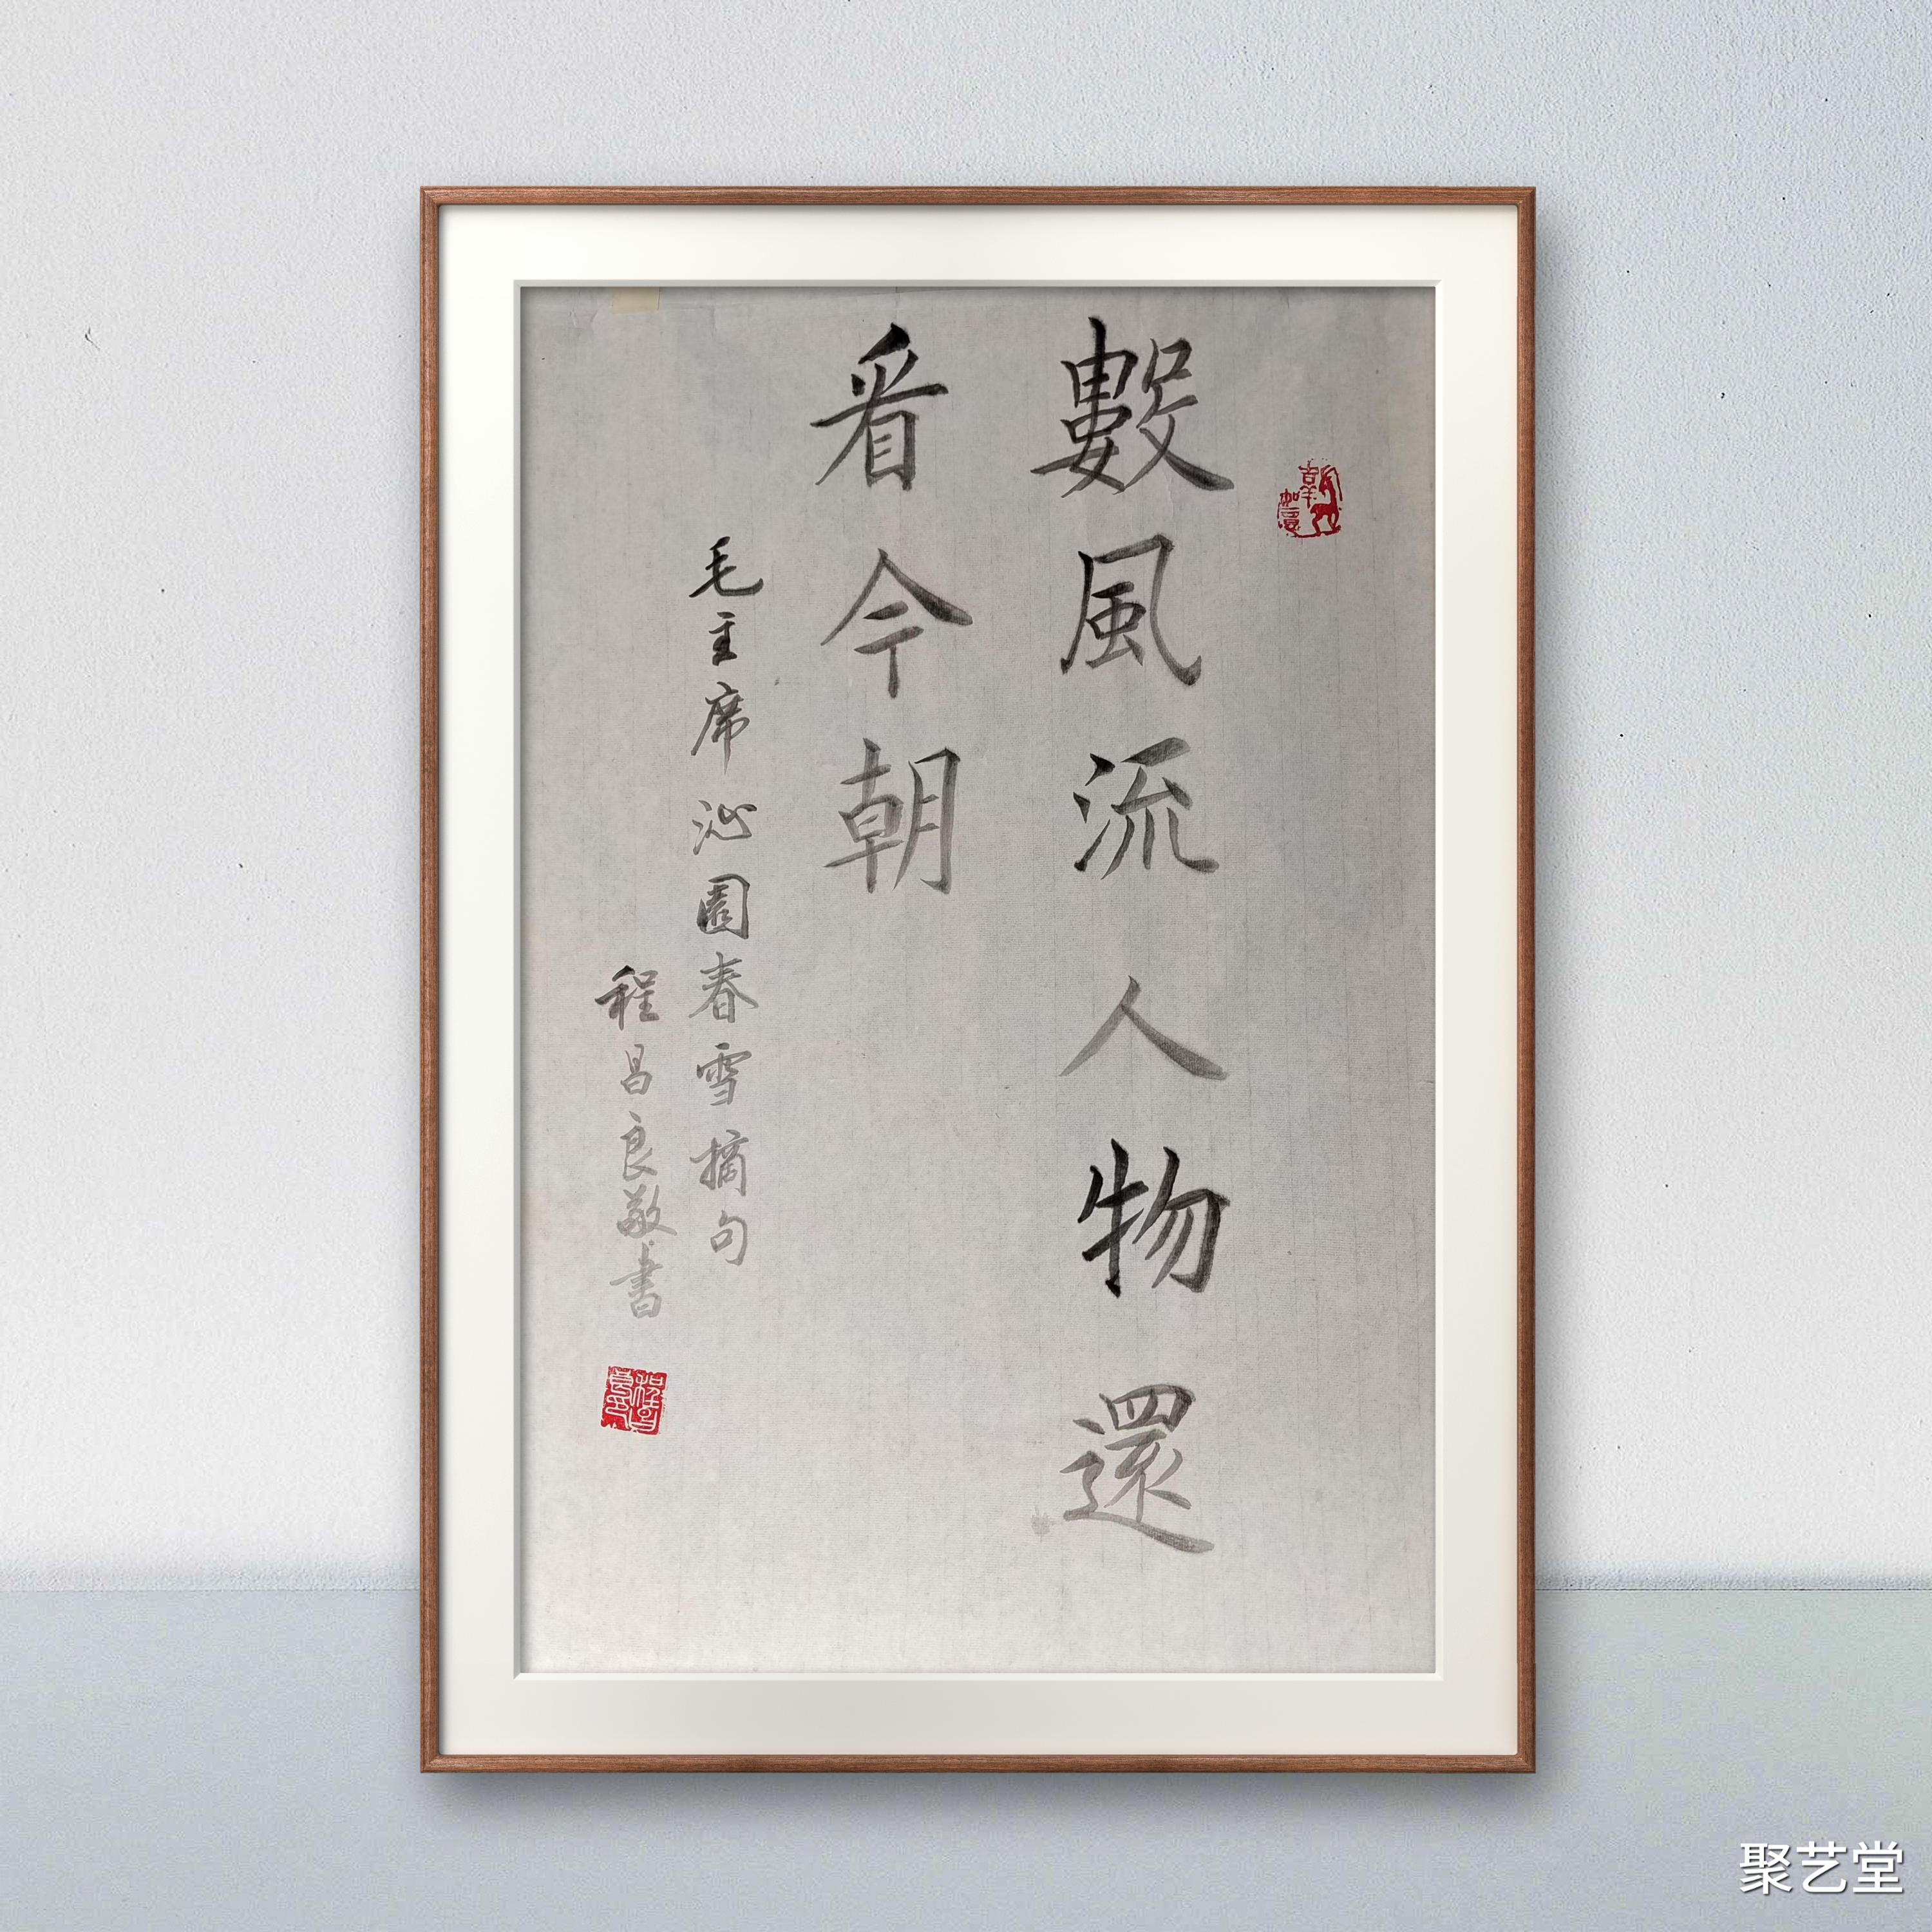 數風流人物還
看今朝
毛主席沁園春雪摘句
程昌良敬書
程昌良印
聚艺堂